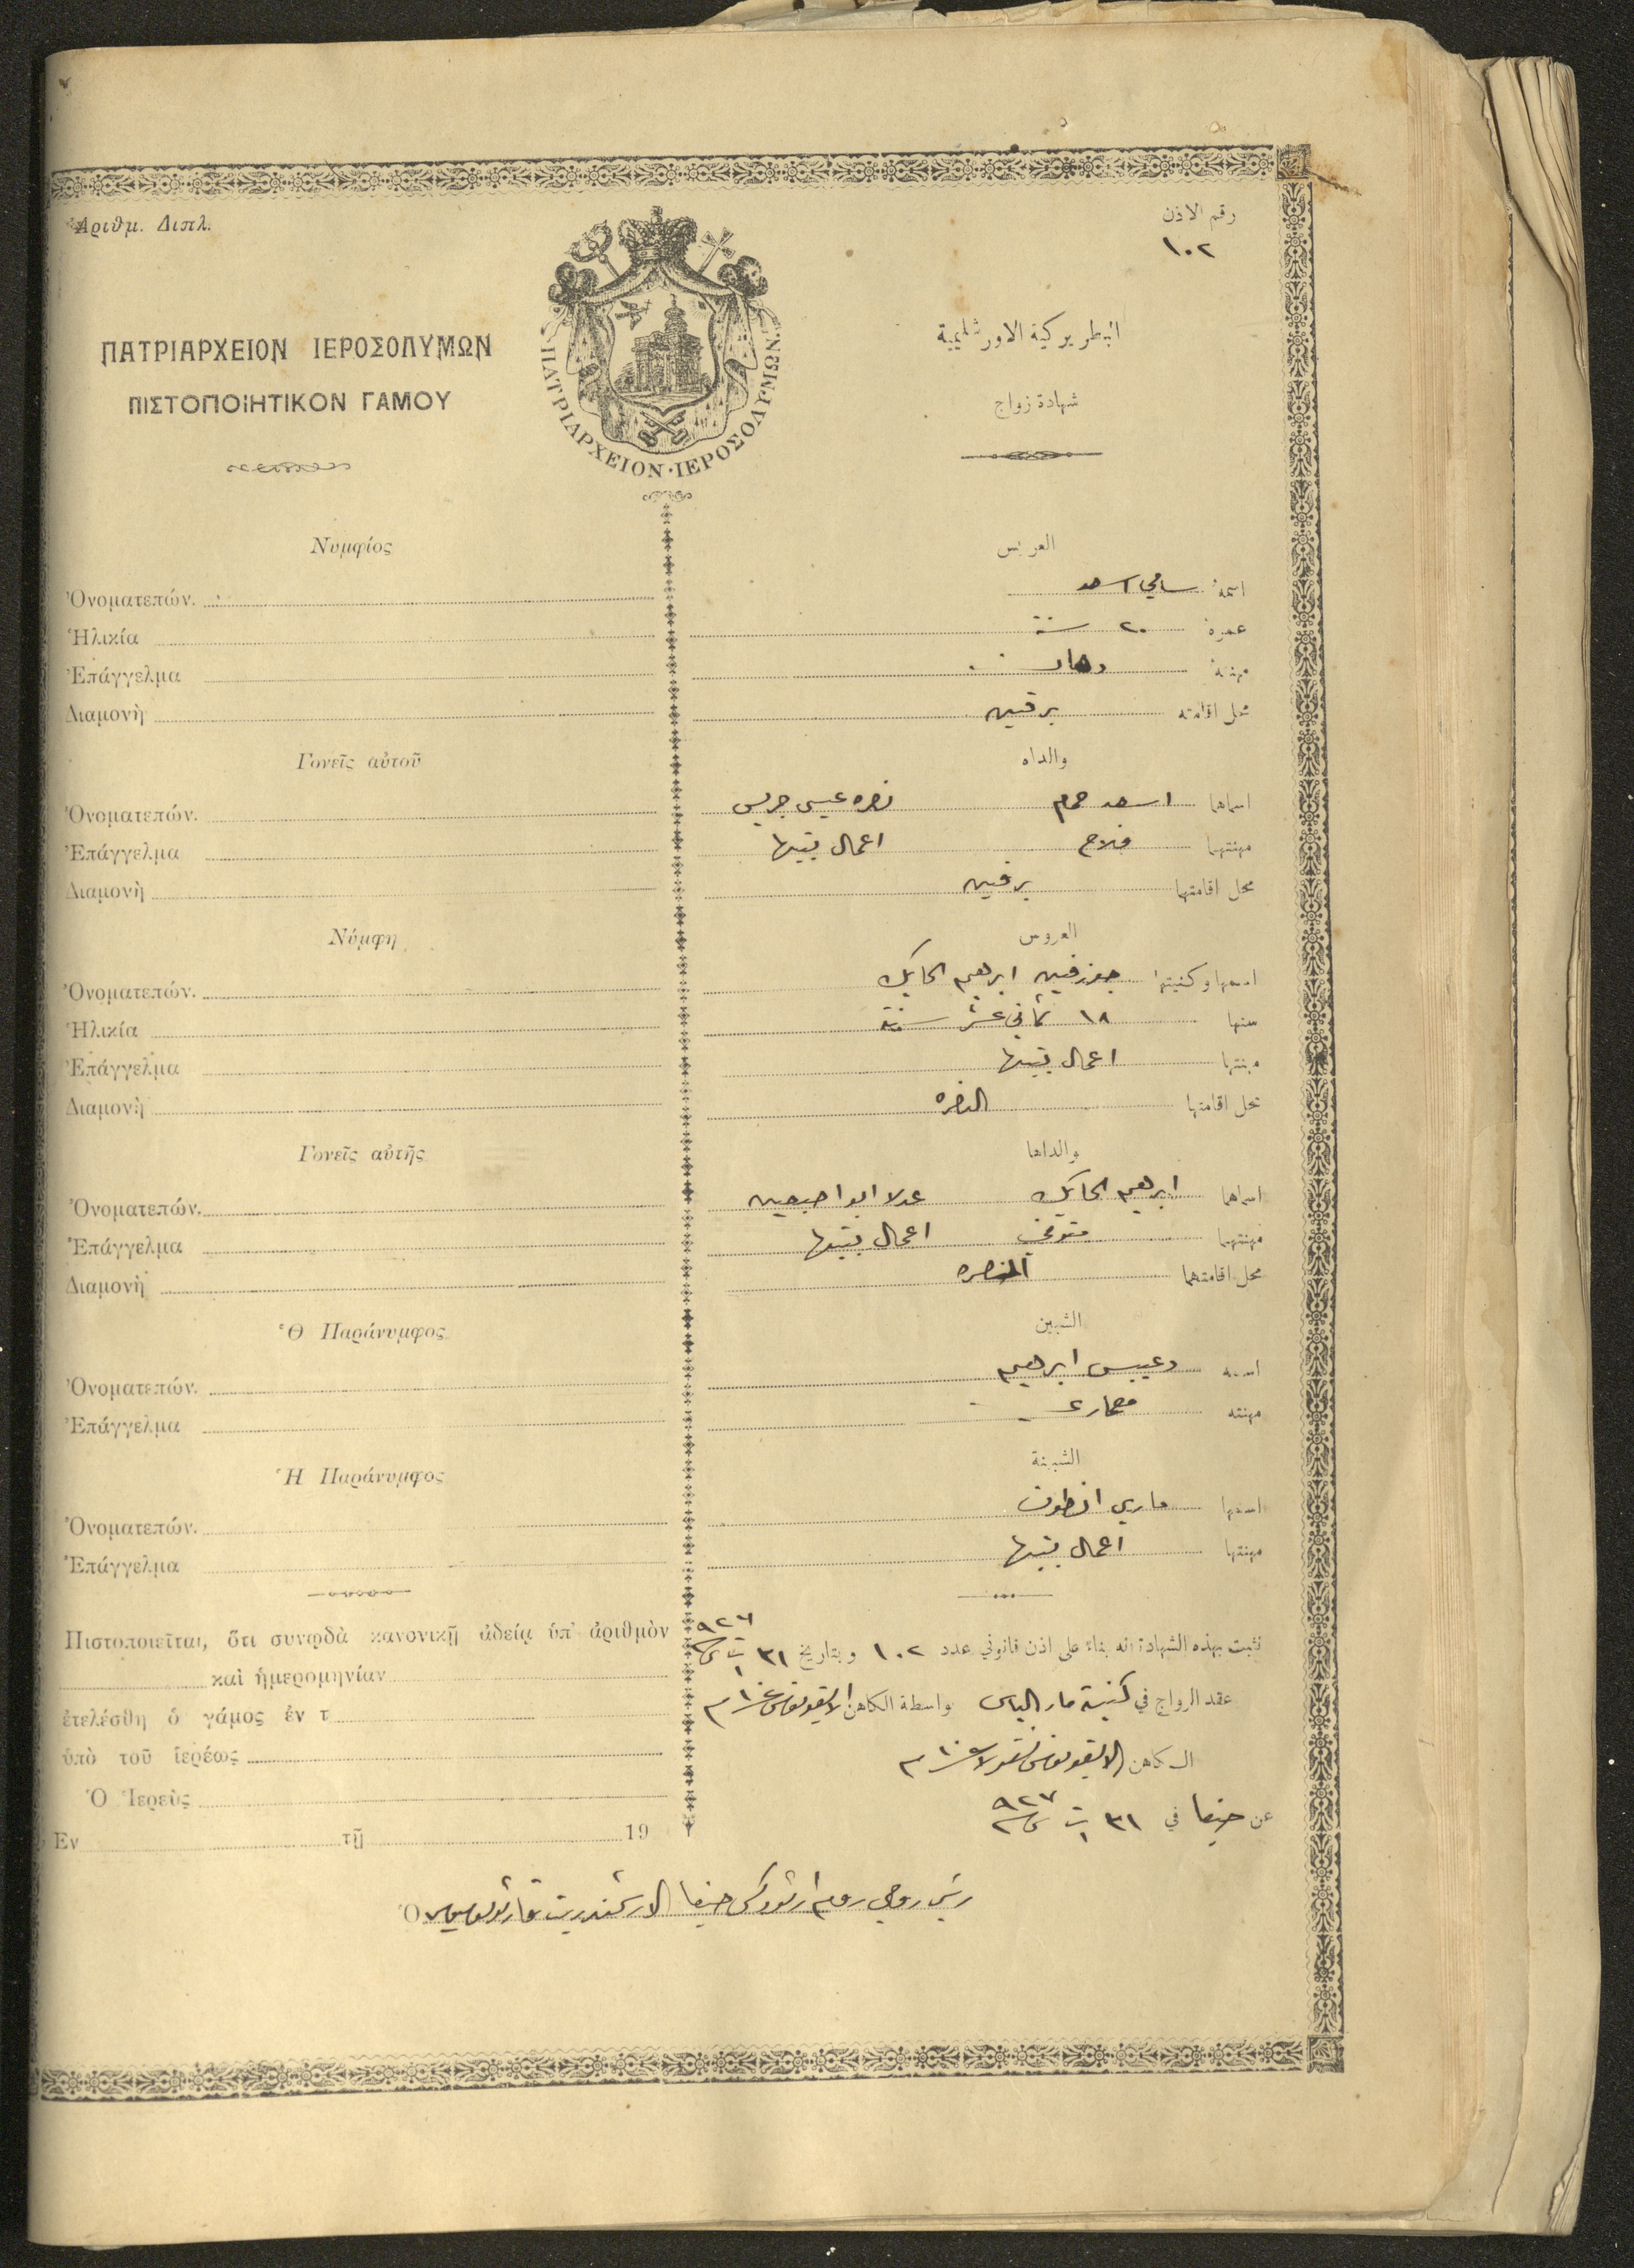 Ἀριθμ. Διπλ.
رقم الاذن
١٠٢
ΠΑΤΡΙΑΡΧΕΙΟΝ ΙΕΡΟΣΟΛΥΜΩΝ
البطريركية الاورشليمية
ΠΙΣΤΟΠΟΙΗΤΙΚΟΝ ΓΑΜΟΥ
شهادة زواج
ΠΑΤΡΙΑΡΧΕΙΟΝ·ΙΕΡΟΣΟΛΥΜΩΝ
Νυμφίος
العريس
Ὀνοματεπών.
اسمهُ سامي اسعد
Ἡλικία
عمرهُ ٢٠ سنة
Ἐπάγγελμα
مهنتهُ دهان
Διαμονὴ
محل اقامته برقين
Γονεῖς αὐτοῦ
والداه
Ὀνοματεπών.
اسماهما اسعد نصره عيسى جريس
Ἐπάγγελμα
مهنتهما فلاح اعمال بيتها
Διαμονὴ
محل اقامتهما برقين
Νύμφη
العروس
Ὀνοματεπών.
اسمها وكنيتها جوزفين ابرهيم الحايك
Ἡλικία
سنها ١٨ ثماني عشر سنة
Ἐπάγγελμα
مهنتها اعمال بيتها
Διαμονὴ
محل اقامتها الناصره
Γονεῖς αὐτῆς
والداها
Ὀνοματεπών.
اسماهما ابرهيم الحايك عدلا ابو
Ἐπάγγελμα
مهنتهما متوفي اعمال بيتها
Διαμονὴ
محل اقامتهما الناصره
Ὁ Παράνυμφος
الشبين
Ὀνοματεπών.
اسمه دعيبس ابرهيم
Ἐπάγγελμα
مهنته معماري
Ἡ Παράνυμφος
الشبينة
Ὀνοματεπών.
اسمها ماري انطون
Ἐπάγγελμα
مهنتها اعمال بيتها
Πιστοποιεῖται, ὅτι συνῳδὰ κανονικῇ ἀδείᾳ ὑπ' ἀριθμὸν
نثبت بهذه الشهادة انه بناءً على اذن قانوني عدد ١٠٢ وبتاريخ ٣١ ت١ ٩٢٧
καὶ ἡμερομηνίαν
ἐτελέσθη ὁ γάμος ἐν τ
عقد الزواج في كنيسة مار الياس بواسطة الكاهن الايقونوموس
ὑπὸ τοῦ ἱερέως
الكاهن الايقونوموس نقولا
Ὁ Ἱερεὺς
عن حيفا في ٣١ ت١ ٩٢٧
Ἐν τῇ 19
Ὁ رئيس روحي روم ارثوذكس حيفا الارشمندريت